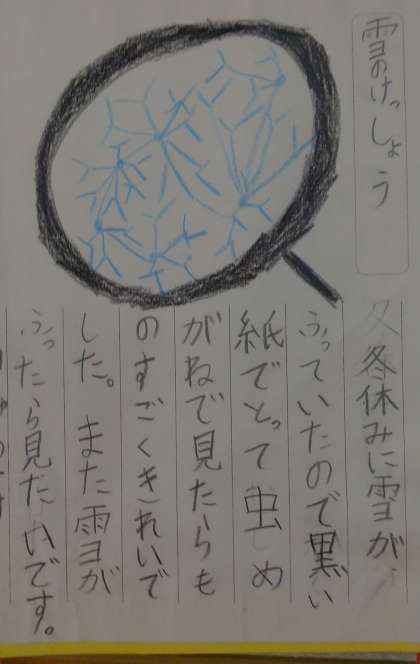 雪のけっしょう
冬休みに雪が、
ふっていたので黒い
紙でとって虫め
がねで見たらも
のすごくきれいで
した。また雪が
ふったら見たいです。